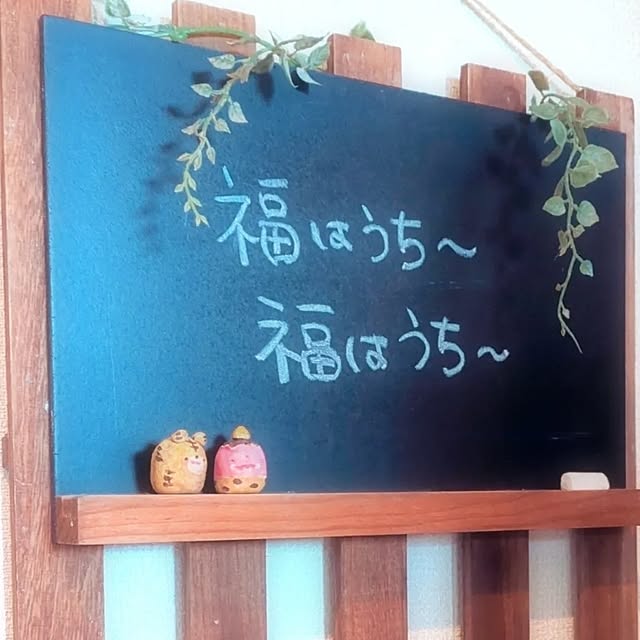 福はうち～
福はうち～